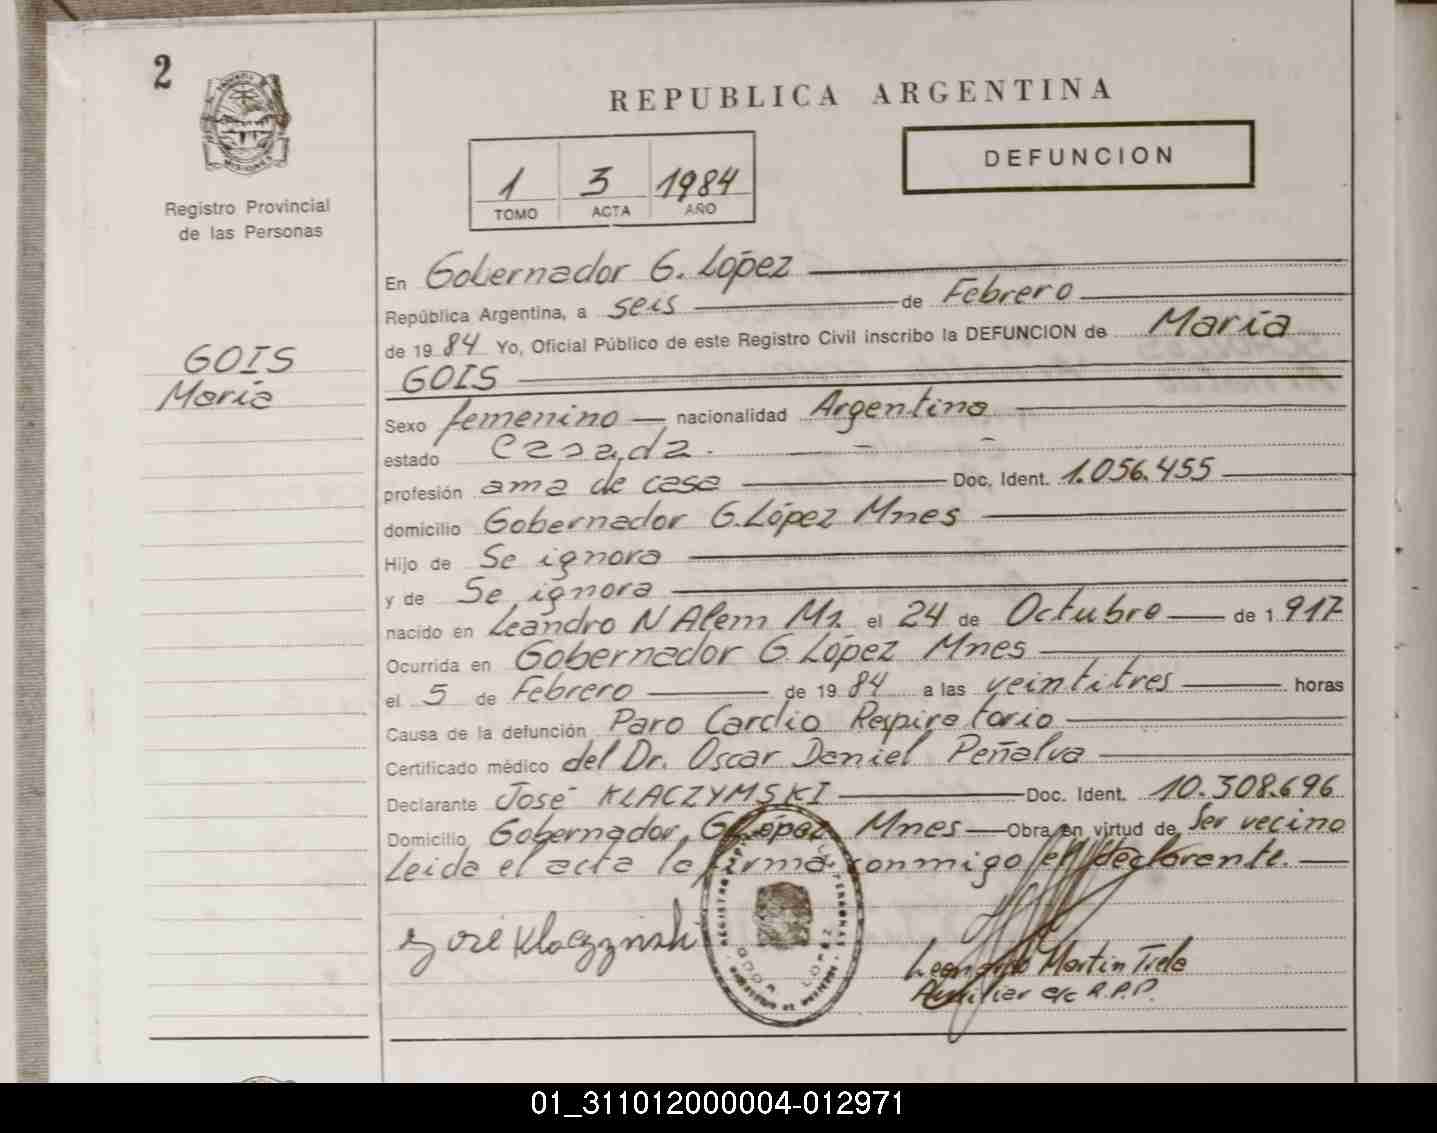 2
REPUBLICA ARGENTINA
DEFUNCION
1 3 1984
TOMO ACTA AÑO
Registro Provincial
de las Personas
GOIS
María
En Gobernador G. López
República Argentina, a seis de Febrero
de 1984 Yo, Oficial Público de este Registro Civil inscribo la DEFUNCION de María
GOIS
Sexo femenino nacionalidad Argentina
estado Casada.
profesión ama de casa Doc. Ident. 1.056.455
domicilio Gobernador G. López Mnes
Hijo de Se ignora
y de Se ignora
nacido en Leandro N Alem Ms. el 24 de Octubre de 1.917
Ocurrida en Gobernador G. López Mnes
el 5 de Febrero de 1984 a las veintitres horas
Causa de la defunción Paro Cardio Respiratorio
Certificado médico del Dr. Oscar Daniel Peñalva
Declarante José KLACZYMSKI Doc. Ident. 10.308.696
Domicilio Gobernador G López Mnes Obra en virtud de Ser vecino
Leida el acta la firma conmigo el declarante.
José Klaczynski
Leonardo Martin Trela
Auxiliar e/c R.P.P.
01_311012000004-012971